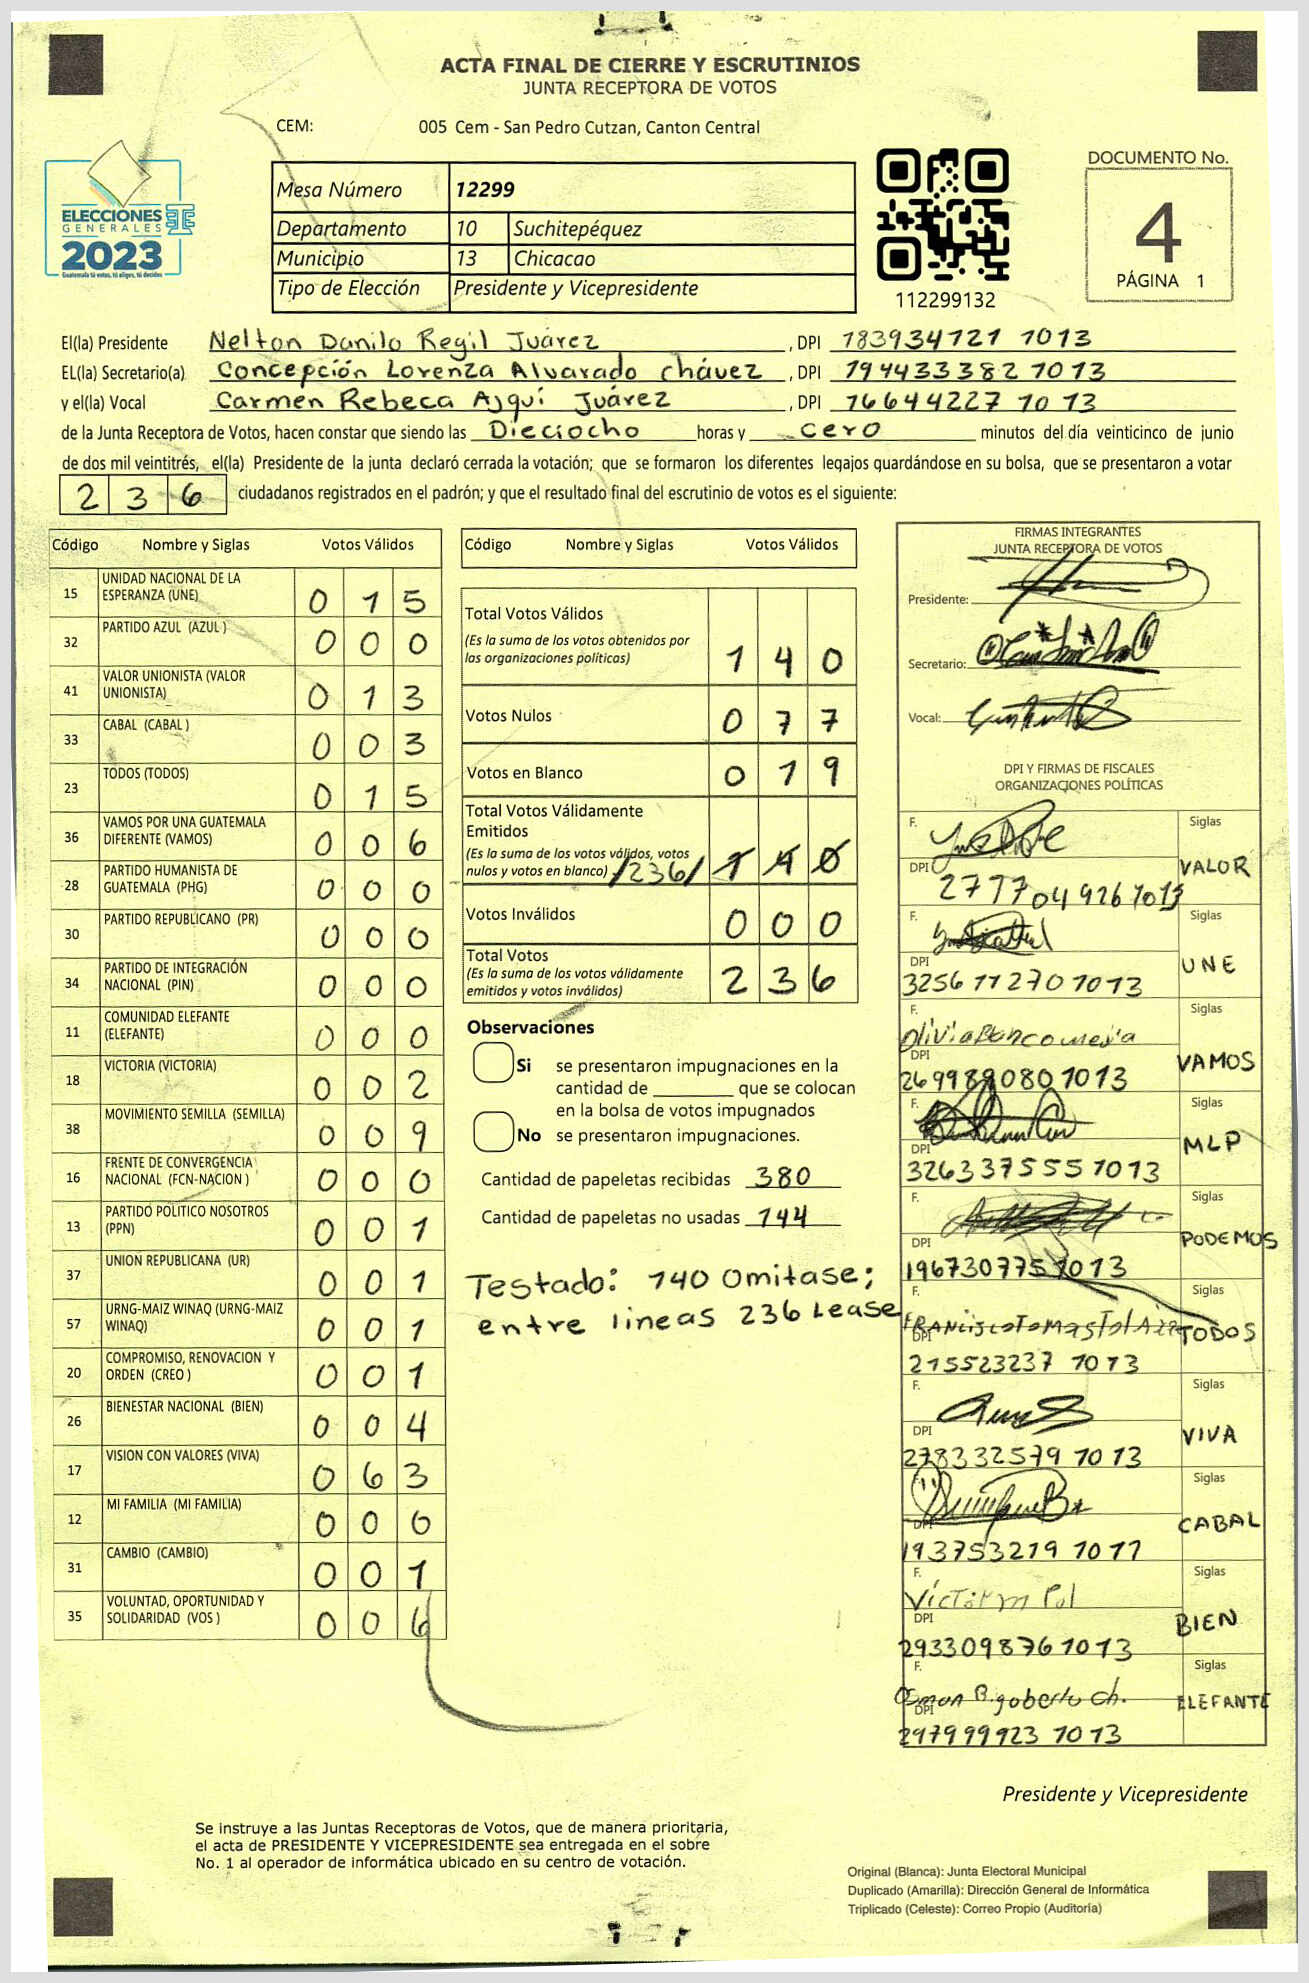 ACTA FINAL DE CIERRE Y ESCRUTINIOS
JUNTA RECEPTORA DE VOTOS
CEM: 005 Cem - San Pedro Cutzan, Canton Central
ELECCIONES
GENERALES
2023
Guatemala tú votas, tú eliges, tú decides
Mesa Número 12299
Departamento 10 Suchitepéquez
Municipio 13 Chicacao
Tipo de Elección Presidente y Vicepresidente
112299132
DOCUMENTO No.
4
PÁGINA 1
El(la) Presidente Nelton Danilo Regil Juárez , DPI 183934721 1013
EL(la) Secretario(a) Concepción Lorenza Alvarado Chávez , DPI 194433382 1013
y el(la) Vocal Carmen Rebeca Ajquí Juárez , DPI 16644227 1013
de la Junta Receptora de Votos, hacen constar que siendo las Dieciocho horas y cero minutos del día veinticinco de junio
de dos mil veintitrés, el(la) Presidente de la junta declaró cerrada la votación; que se formaron los diferentes legajos quardándose en su bolsa, que se presentaron a votar
2 3 6 ciudadanos registrados en el padrón; y que el resultado final del escrutinio de votos es el siguiente:
Código Nombre y Siglas Votos Válidos
15 UNIDAD NACIONAL DE LA ESPERANZA (UNE) 0 1 5
32 PARTIDO AZUL (AZUL ) 0 0 0
41 VALOR UNIONISTA (VALOR UNIONISTA) 0 1 3
33 CABAL (CABAL ) 0 0 3
23 TODOS (TODOS) 0 1 5
36 VAMOS POR UNA GUATEMALA DIFERENTE (VAMOS) 0 0 6
28 PARTIDO HUMANISTA DE GUATEMALA (PHG) 0 0 0
30 PARTIDO REPUBLICANO (PR) 0 0 0
34 PARTIDO DE INTEGRACIÓN NACIONAL (PIN) 0 0 0
11 COMUNIDAD ELEFANTE (ELEFANTE) 0 0 0
18 VICTORIA (VICTORIA) 0 0 2
38 MOVIMIENTO SEMILLA (SEMILLA) 0 0 9
16 FRENTE DE CONVERGENCIA NACIONAL (FCN-NACION ) 0 0 0
13 PARTIDO POLITICO NOSOTROS (PPN) 0 0 1
37 UNION REPUBLICANA (UR) 0 0 1
57 URNG-MAIZ WINAQ (URNG-MAIZ WINAQ) 0 0 1
20 COMPROMISO, RENOVACION Y ORDEN (CREO ) 0 0 1
26 BIENESTAR NACIONAL (BIEN) 0 0 4
17 VISION CON VALORES (VIVA) 0 6 3
12 MI FAMILIA (MI FAMILIA) 0 0 0
31 CAMBIO (CAMBIO) 0 0 1
35 VOLUNTAD, OPORTUNIDAD Y SOLIDARIDAD (VOS ) 0 0 6
Código Nombre y Siglas Votos Válidos
Total Votos Válidos
(Es la suma de los votos obtenidos por
las organizaciones politicas) 1 4 0
Votos Nulos 0 7 7
Votos en Blanco 0 1 9
Total Votos Válidamente
Emitidos
(Es la suma de los votos válidos, votos
nulos y votos en blanco) /236/ 1 4 0
Votos Inválidos 0 0 0
Total Votos
(Es la suma de los votos válidamente
emitidos y votos inválidos) 2 3 6
Observaciones
Si se presentaron impugnaciones en la
cantidad de ________ que se colocan
en la bolsa de votos impugnados
No se presentaron impugnaciones.
Cantidad de papeletas recibidas 380
Cantidad de papeletas no usadas 144
Testado: 140 Omitase;
entre lineas 236 Lease
FIRMAS INTEGRANTES
JUNTA RECEPTORA DE VOTOS
Presidente:
Secretario:
Vocal:
DPI Y FIRMAS DE FISCALES
ORGANIZACIONES POLÍTICAS
F. Siglas
DPI 2777 04 926 1013 VALOR
F. Siglas
DPI UNE
3256 11270 1013
F. Olivia Blanco mejia Siglas
DPI VAMOS
269989080 1013
F. Siglas
DPI MLP
326337555 1013
F. Siglas
DPI PODEMOS
196730775 1013
F. Siglas
DPI TODOS
215523237 1013
F. Siglas
DPI VIVA
278332579 1013
Siglas
DPI CABAL
193753219 1011
F. Víctor m Pol Siglas
DPI BIEN
293309876 1013
F. Siglas
DPI Osman Rigoberto Ch. ELEFANTE
297999923 1013
Presidente y Vicepresidente
Se instruye a las Juntas Receptoras de Votos, que de manera prioritaria,
el acta de PRESIDENTE Y VICEPRESIDENTE sea entregada en el sobre
No. 1 al operador de informática ubicado en su centro de votación.
Original (Blanca): Junta Electoral Municipal
Duplicado (Amarilla): Dirección General de Informática
Triplicado (Celeste): Correo Propio (Auditoría)